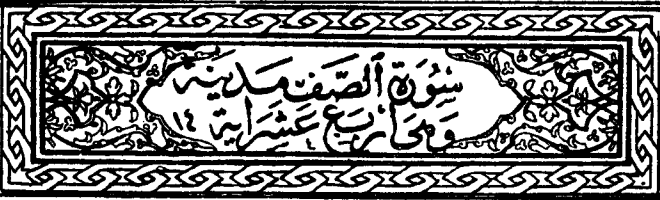 سُورَة الصَّف مَدنِيَة
وَهِىَ أَربَع عَشَرَ اٰيَة ١٤